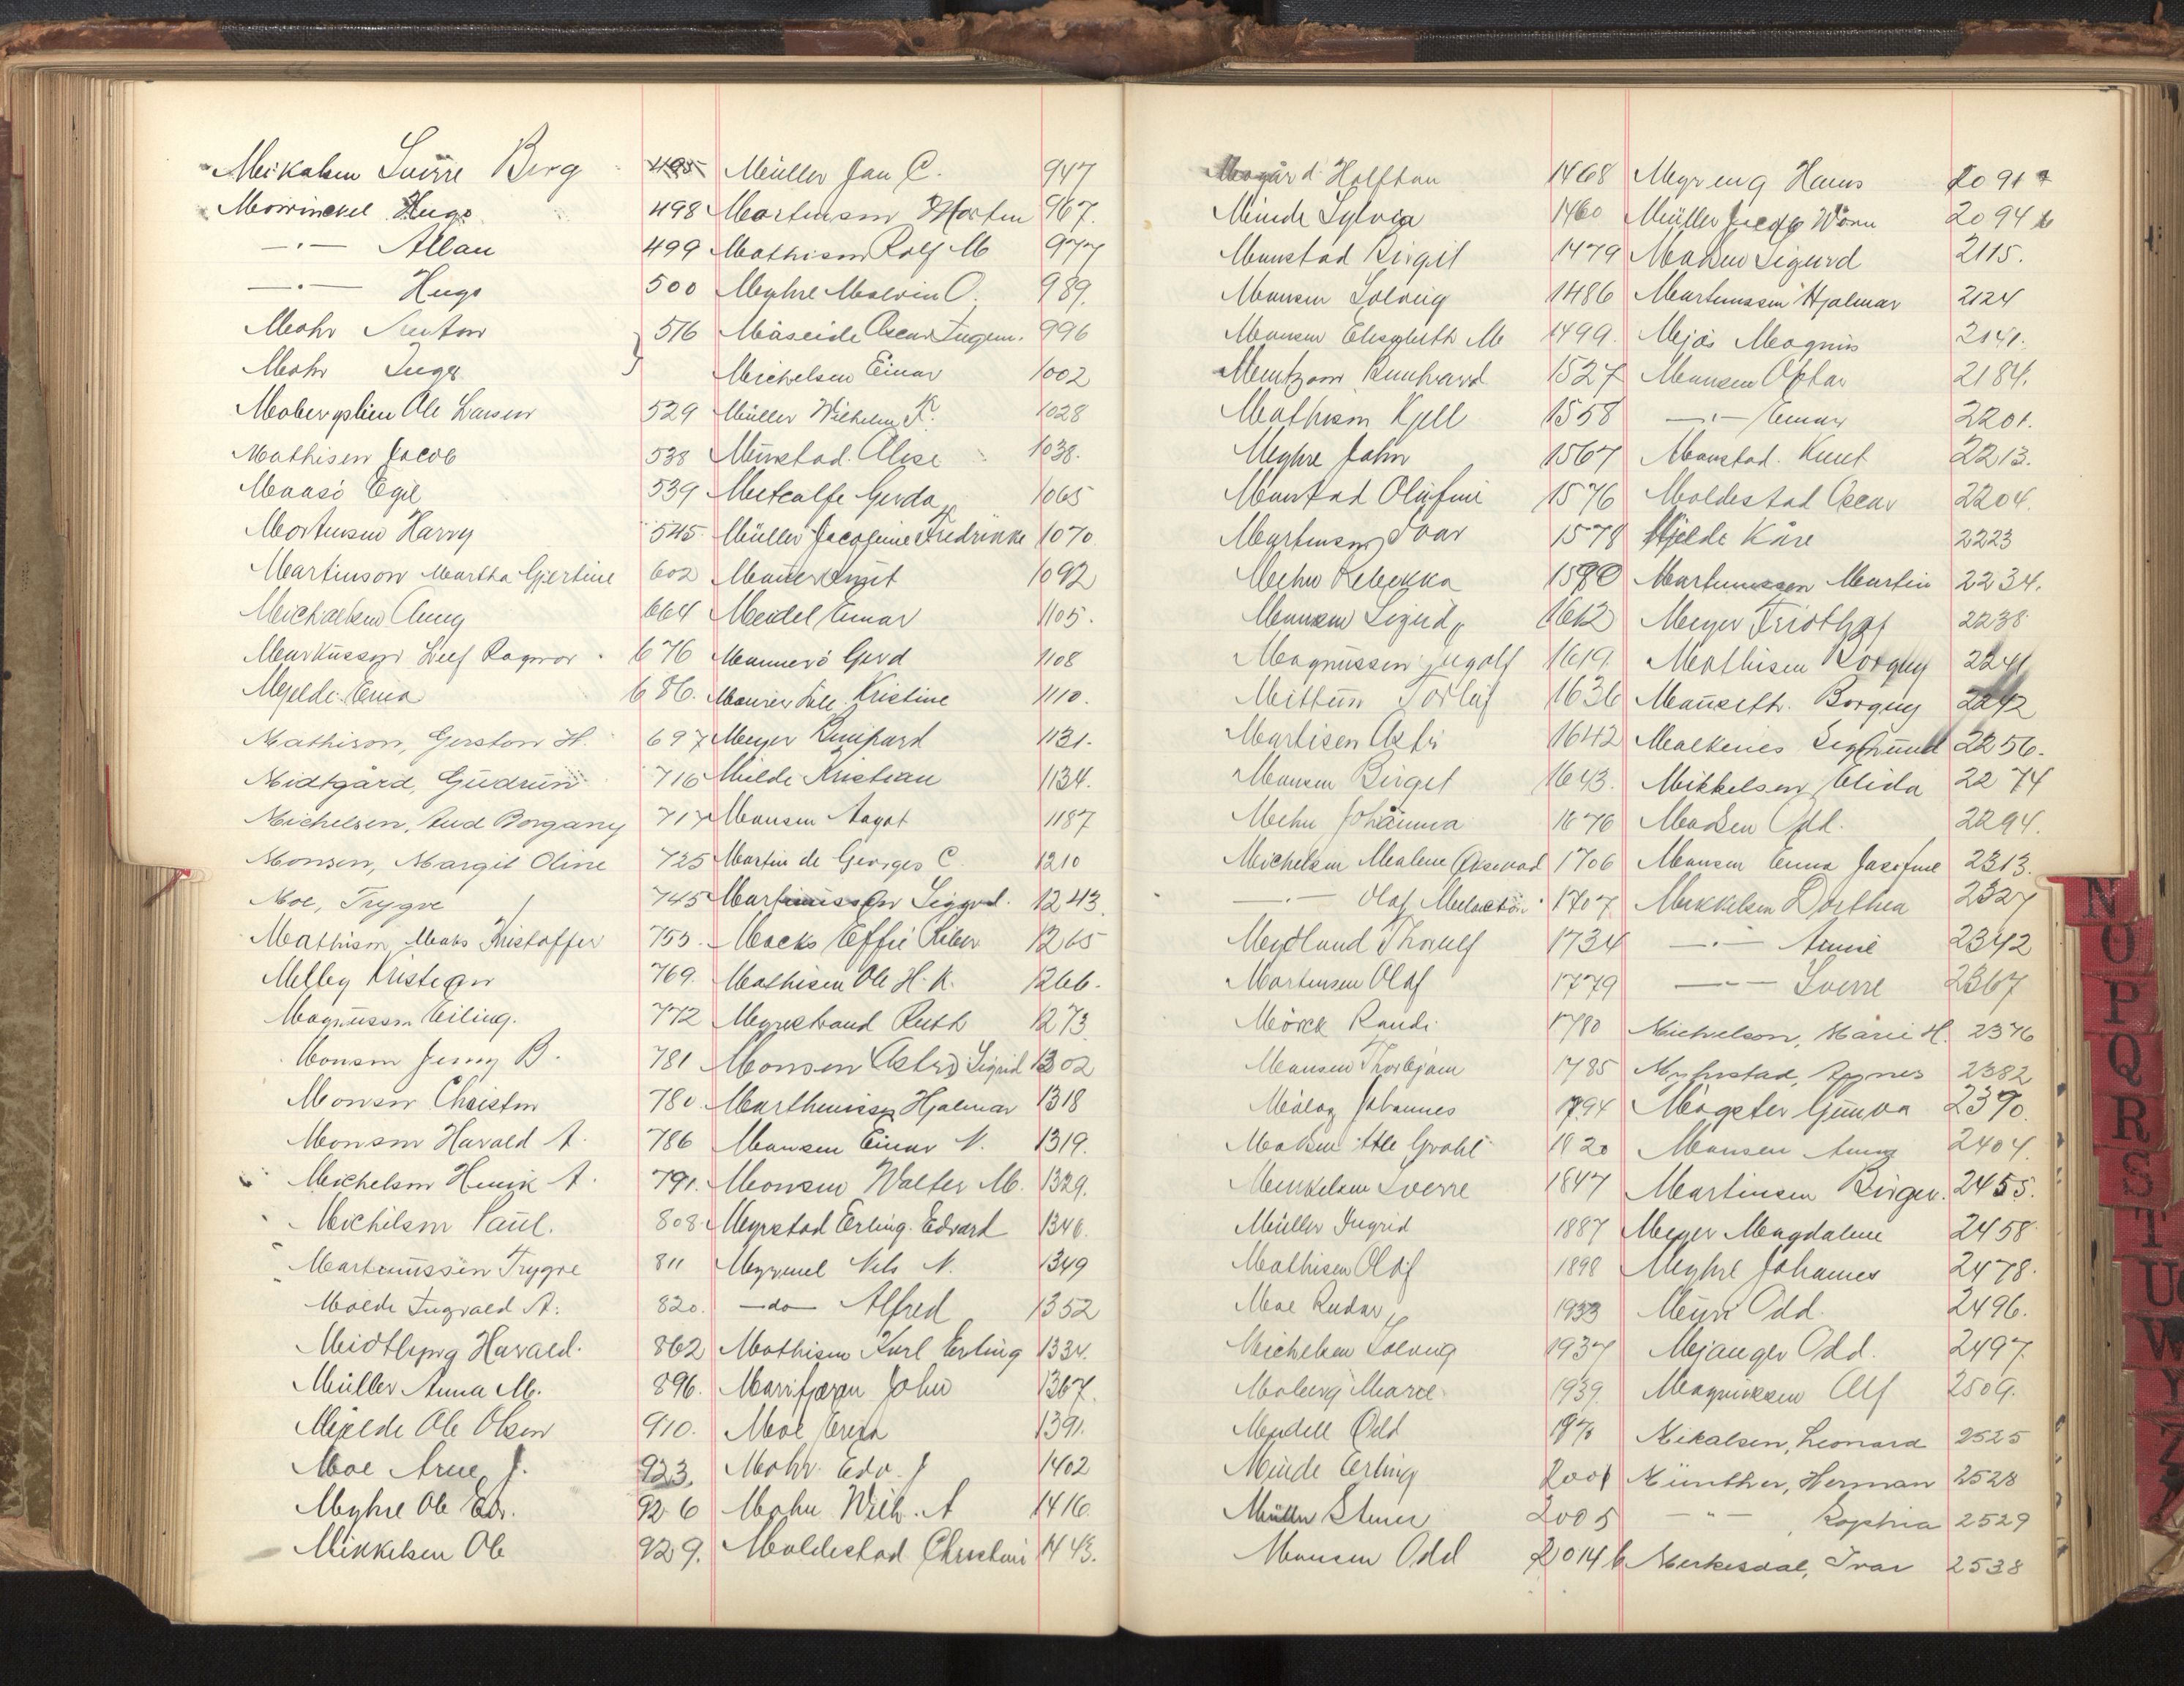 Mikalsen Sverre Berg 495
Mowinckel Hugo 498
—·— Allan 499
—·— Hugo 500
Mohr Anton 516
Mohr Inger
Mobergslien Ole Larsen 529
Mathisen Jacob 538
Maasö Egil 539
Mortensen Harry 545
Martinson Martha Gjertine 602
Michaelsen Aung 664
Markussen Leif Ragnar 676
Mjelde Erna 686
Mathison, Gerston H. 697
Midtgård, Gudrun 716
Michelsen, Aud Borgany 717
Monsen, Margit Oline 725
Moe, Trygve 745
Mathisen Mads Kristoffer 755
Melby Kristian 769
Magnussen Eiling 772
Monsen Jenny B. 781
Monsen Christen 780
Monsen Harald A. 786
Michelsen Henrik A. 791
Michelsen Paul. 808
Martinussen Trygve 811
Molde Ingvald A. 820
Midtbyng Harald 862
Müller Anna M. 896
Mjelde Ole Olsen 910
Moe Arne J. 923
Myhre Ole Edv. 926
Mikkelsen Ole 929
Müller Jan C. 947
Martinsen Morten 967
Mathisen Rolf M 977
Myhre Malvin O. 989
Måseide Oscar Ingem. 996
Michelsen Einar 1002
Müller Wilhelm K. 1028
Munstad Alise 1038
Metcalfe Gerda 1065
Müller Jacobine Fredrikke 1070
Knut 1092
Meidel Einar 1105
Mannerö Gerd 1108
Kristine 1110
Meyer Bernhard 1131
Milde Kristian 1134
Monsen Aagot 1187
Martin de Georges C. 1210
Martinussen Sigurd 1243
Macks Effie Riber 1265
Mathisen Ole H. K. 1266
Myrestrand Ruth 1273
Monsen Astrid Sigrid 1302
Marthinussen Hjalmar 1318
Monsen Einar N. 1319
Monsen Walter M. 1329
Myrstad Erling Edvard 1346
Myrmel Nils N. 1349
—do— Alfred 1352
Mathisen Karl Erling 1334
Marifjæren John 1367
Moe Erna 1391
Mohr Edv. J 1402
Mohn Wilh. A 1416
Moldestad Christine 1443
Mogård Halfdan 1468
Minde Sylvia 1460
Monstad Birgit 1479
Monsen Solveig 1486
Monsen Elisabeth M 1499
Mentzoni Bernhard 1527
Mathisen Kjell 1558
Myhre John 1567
Monstad Olufine 1576
Martinsen Ivar 1578
Mehn Rebekka 1590
Monsen Sigurd 1612
Magnussen Ingolf 1619
Mittun Torleif 1636
Martisen Astri 1642
Monsen Birgit 1643
Mehn Johanna 1676
Michelsen Malene 1706
—·— Olaf 1707
Mydland Thorulf 1734
Mortensen Olaf 1779
Mörck Randi 1780
Monsen Thorbjørn 1785
Johannes 1794
Madsen Atle Grahl 1820
Menkelsen Sverre 1847
Müller Ingrid 1887
Mathisen Olaf 1898
Moe Reidar 1933
Michelsen Solveig 1937
Moberg Marie 1939
Mydell Odd
Minde Erling 2001
Müller Stener 2005
Monsen Odd 2014 b
Myreng Hans 2091 a
Müller Jacob Worm 2094 b
Madsen Sigurd 2115
Martinussen Hjalmar 2124
Mjös Magnus 2141
Monsen Ottar 2184
—·— Einar 2201
Monstad Knut 2213
Moldestad Oscar 2204
Mjelde Kåre 2223
Martinussen Martin 2234
Meyer Fridthjof 2238
Mathisen Borgny 2241
Mauseth Borgny 2242
Malkenes Sigmund 2256
Mikkelsen Elida 2274
Madsen Odd 2294
Monsen Enna Josefine 2313
Mikkelsen Dorthea 2327
—·— Annie 2342
—·— Sverre 2367
Michelson, Marie H. 2376
Myhrstad, Agnes 2382
Møgster Gunva 2390
Monsen Anna 2404
Martinsen Birger 2455
Meyer Magdalene 2458
Myhre Johannes 2478
Myri Odd 2496
Mjanger Odd 2497
Magnussen Alf 2509
Mikalsen, Leonard 2525
Münther, Herman 2528
— " — , Sophia 2529
Merkesdal, Ivar 2538
N
O
P
Q
R
S
T
U
W
Y
Z